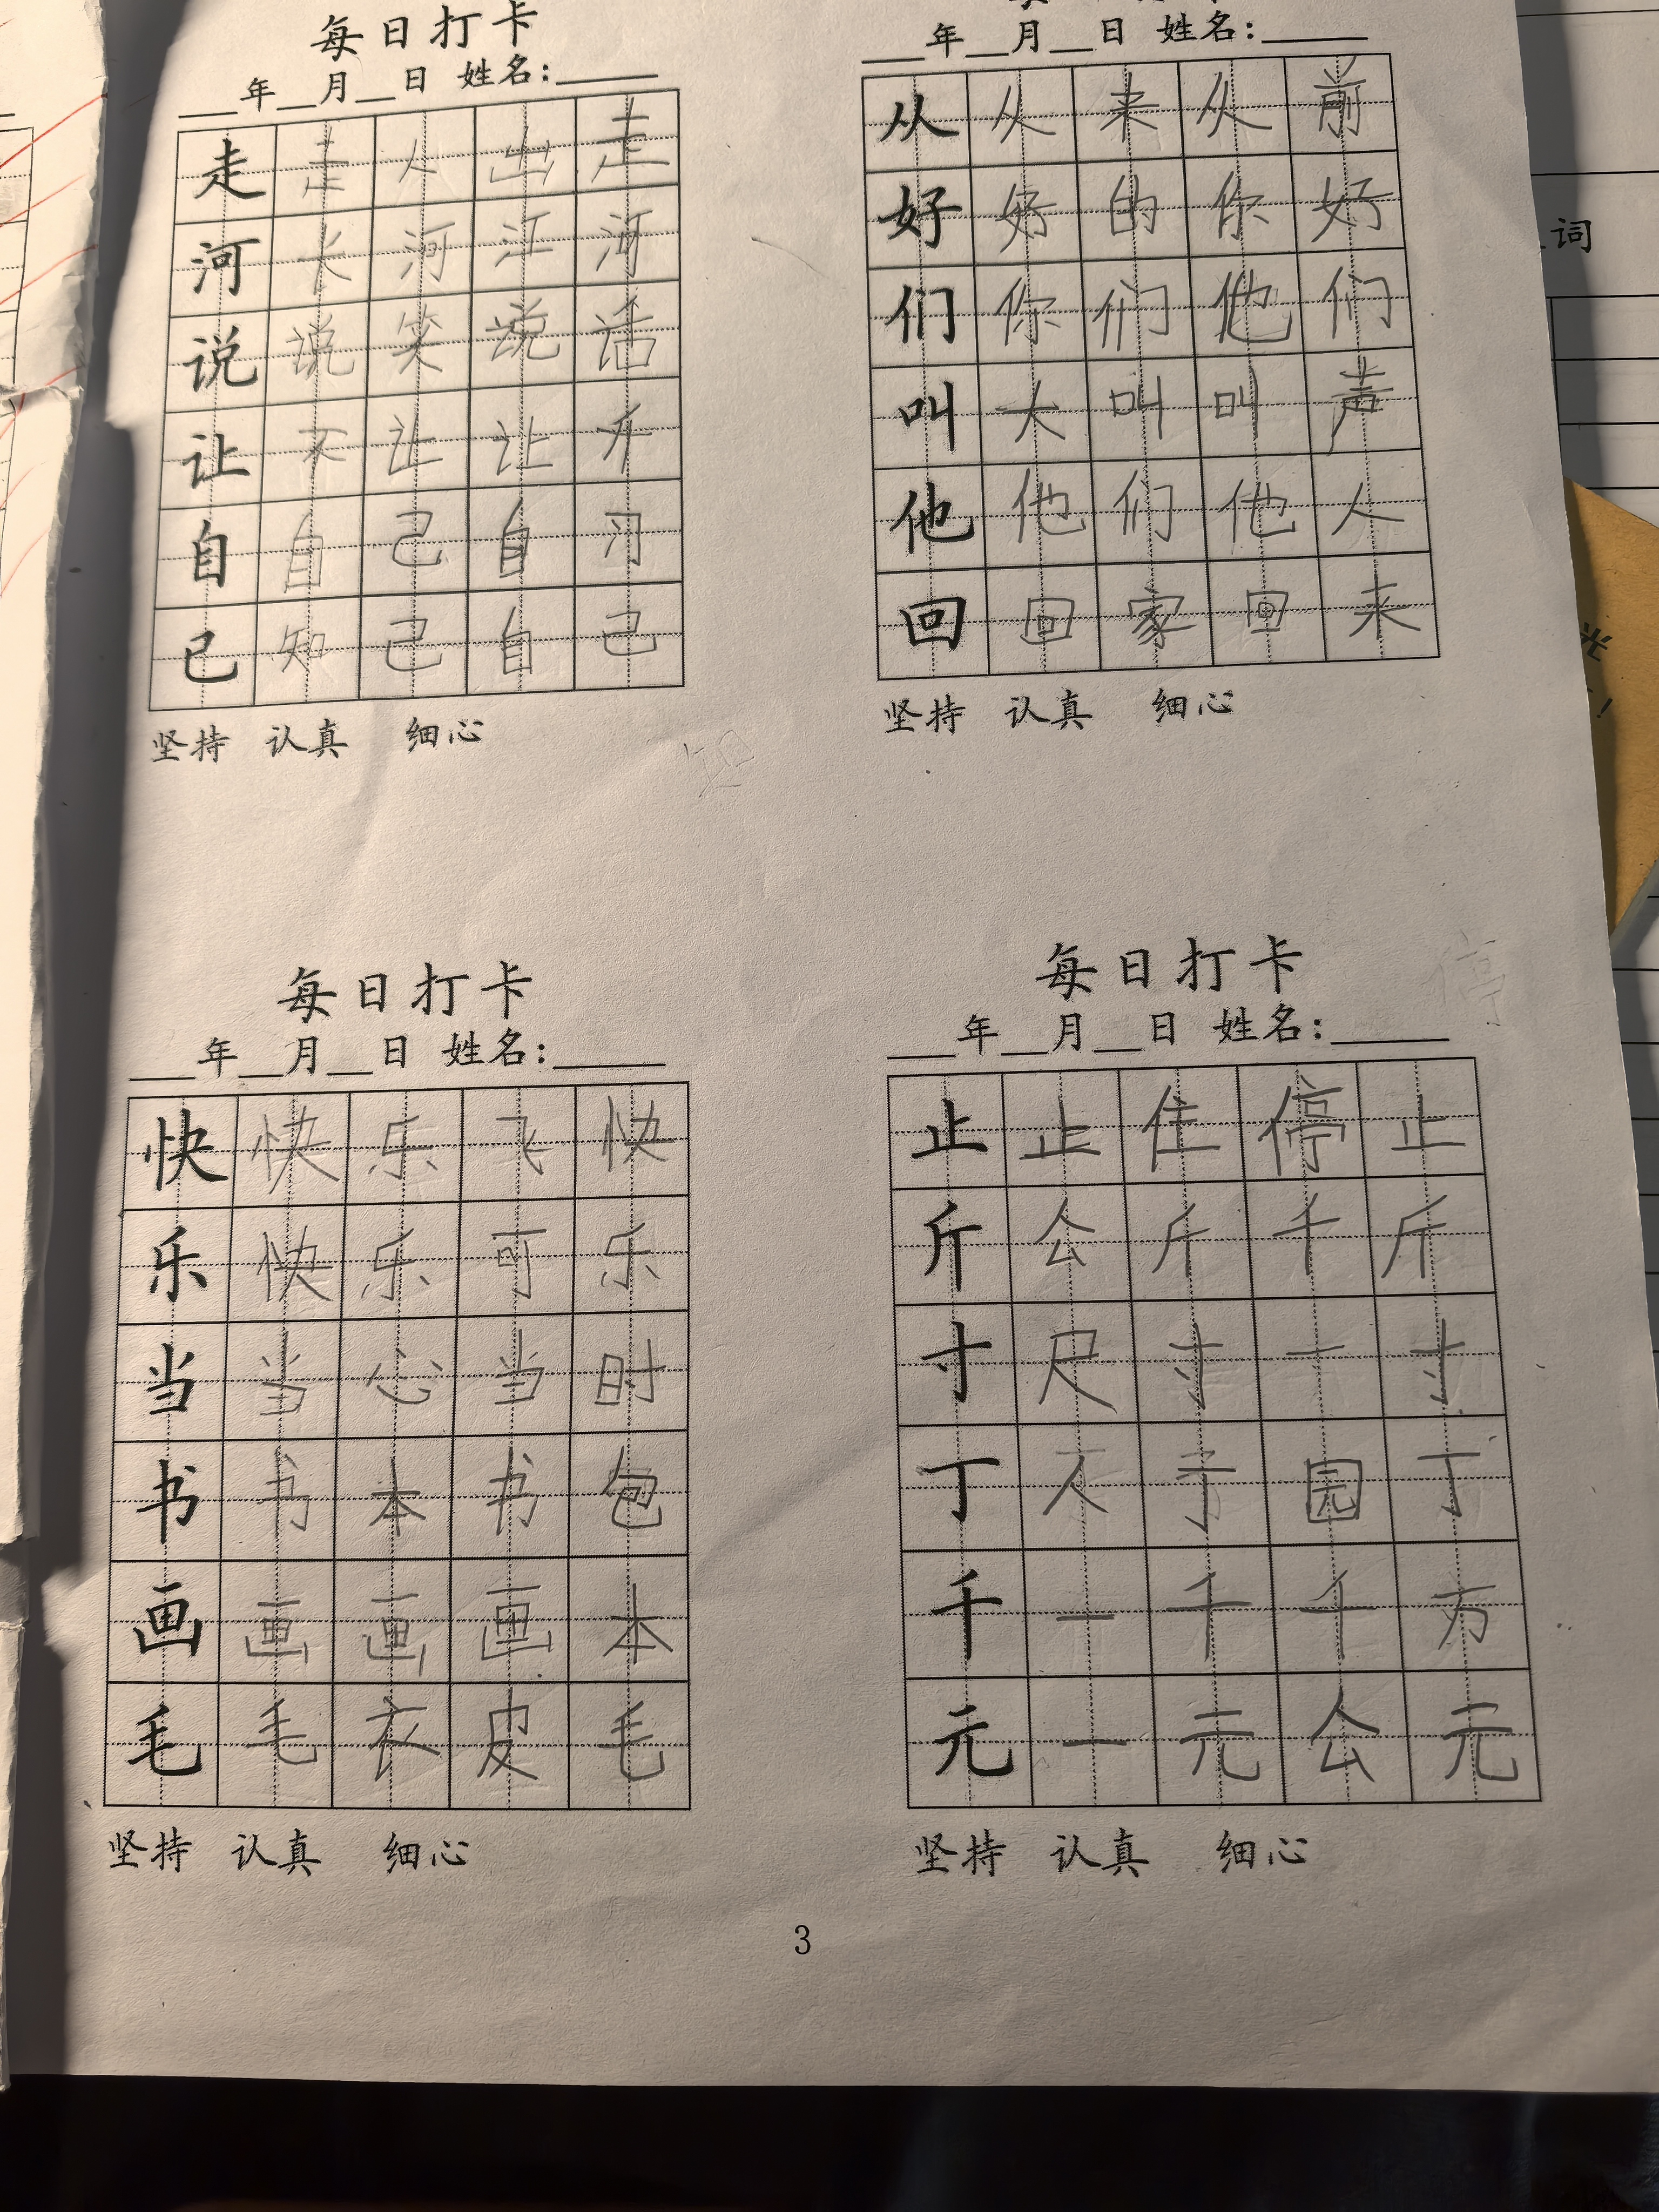 每日打卡
__年__月__日 姓名:____
走 走 人 出 走
河 大 河 江 河
说 说 笑 说 话
让 不 让 让 开
自 自 己 自 习
己 知 己 自 己
坚持 认真 细心
__年__月__日 姓名:____
从 从 来 从 前
好 好 的 你 好
们 你 们 他 们
叫 大 叫 叫 声
他 他 们 他 人
回 回 家 回 来
坚持 认真 细心
每日打卡
__年__月__日 姓名:____
快 快 乐 飞 快
乐 快 乐 可 乐
当 当 心 当 时
书 书 本 书 包
画 画 画 画 本
毛 毛 衣 皮 毛
坚持 认真 细心
每日打卡
__年__月__日 姓名:____
止 止 住 停 止
斤 公 斤 千 斤
寸 尺 寸 一 寸
丁 人 丁 园 丁
千 一 千 千 万
元 一 元 公 元
坚持 认真 细心
3
词
光
停